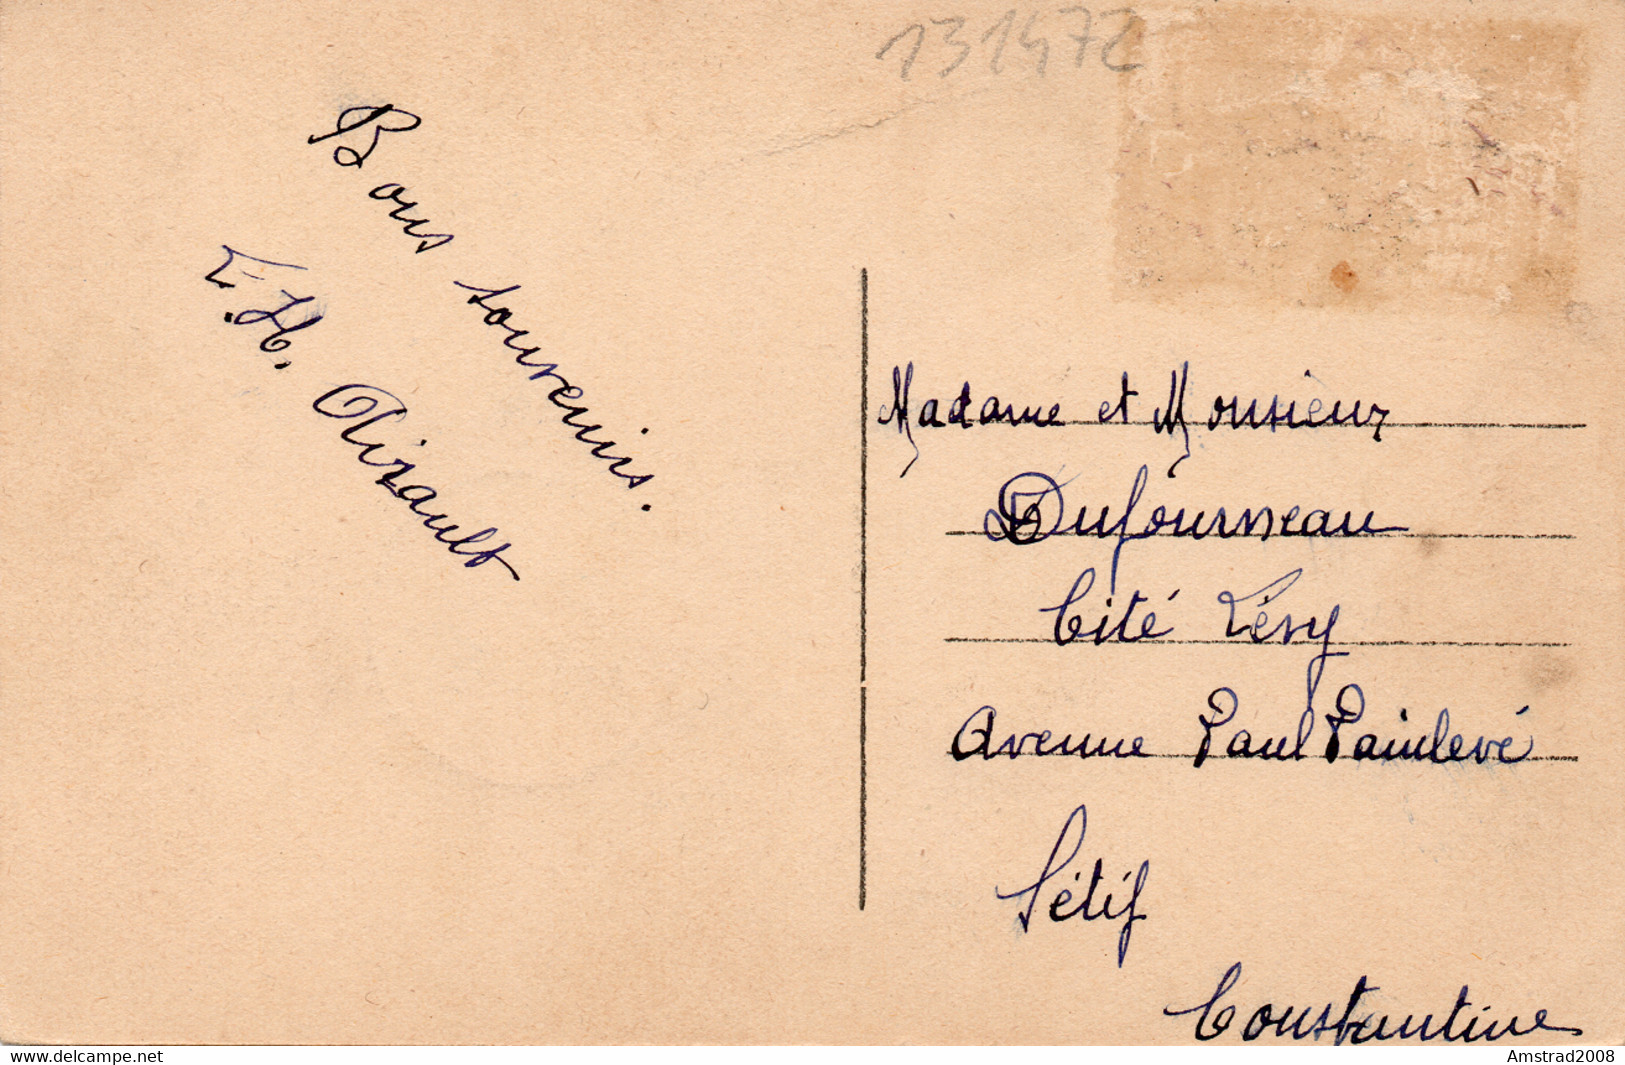 131472
Bons souvenirs.
L. H. Airault
Madame et Monsieur
Dufourneau
Cité Lévy
Avenue Paul Painlevé
Sétif
Constantine
www.delcampe.net
Amstrad2008